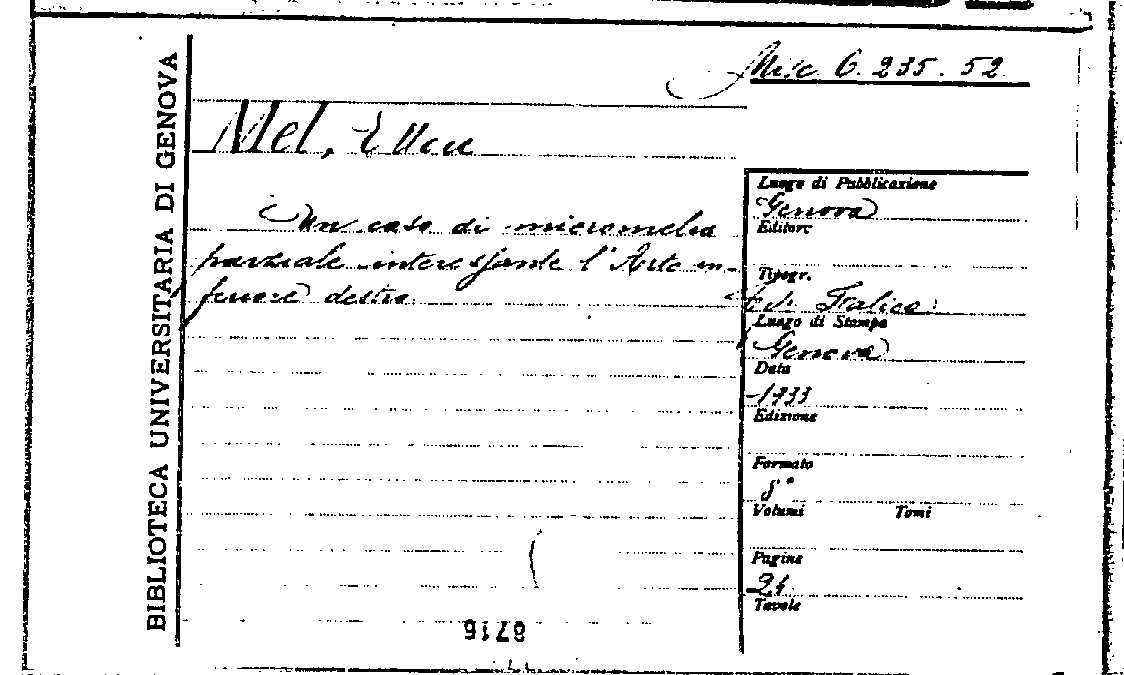 Misc. G. 235. 52
BIBLIOTECA UNIVERSITARIA DI GENOVA
Mel,
Un caso di micromelia
parziale interessante l'Arto in-
feriore destro
Luogo di Pubblicazione
Genova
Editore
Tipogr.
Italica
Luogo di Stampa
Genova
Data
1933
Edizione
Formato
8°
Volumi Tomi
Pagine
24
Tavole
8716